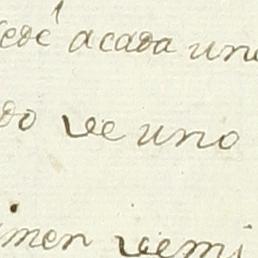 cede acada uno
do ve uno
imen vemi